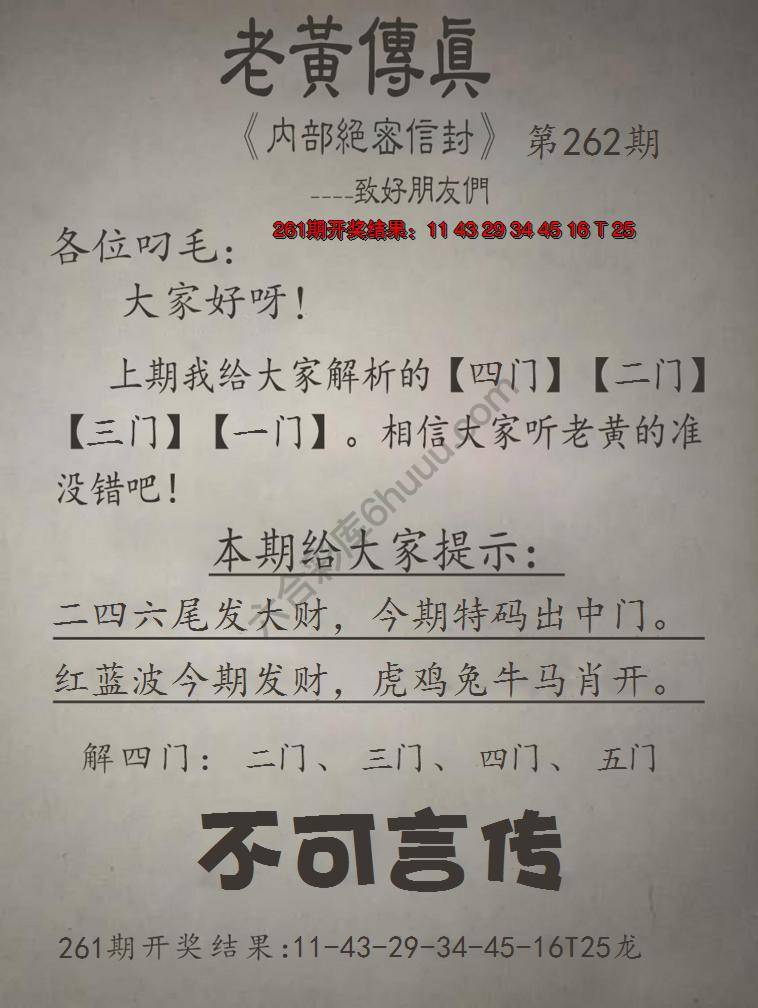 老黃傳真
《内部絕密信封》 第262期
----致好朋友們
261期开奖结果：11 43 29 34 45 16 T 25
各位叼毛：
大家好呀！
上期我给大家解析的【四门】【二门】
【三门】【一门】。相信大家听老黄的准
没错吧！
六合彩库6huuu.com
本期给大家提示：
二四六尾发大财，今期特码出中门。
红蓝波今期发财，虎鸡兔牛马肖开。
解四门：二门、三门、四门、五门
不可言传
261期开奖结果:11-43-29-34-45-16T25龙